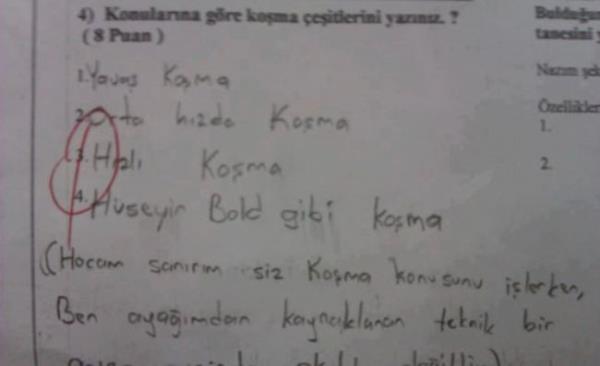 4) Konularına göre koşma çeşitlerini yazınız. ?
( 8 Puan )
1. Yavaş Koşma
2. Orta hızda Koşma
3. Hızlı Koşma
4. Hüseyin Bold gibi koşma
(Hocam sanırım siz Koşma konusunu işlerken,
Ben ayağımdan kaynaklanan teknik bir
Nazım
Özellikler
1.
2.